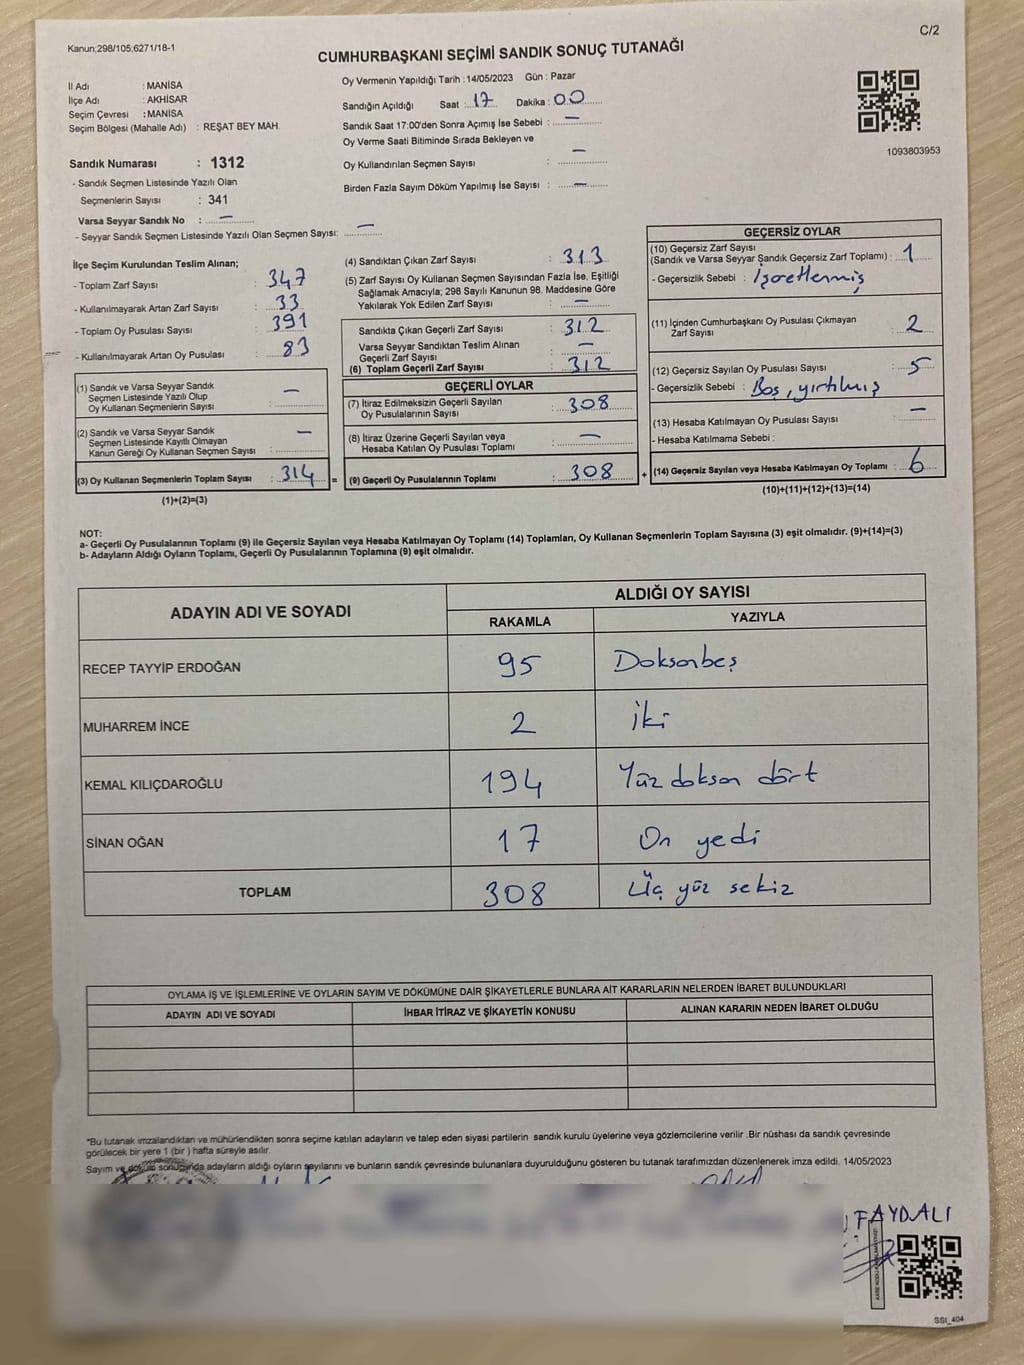 Kanun;298/105;6271/18-1
C/2
CUMHURBAŞKANI SEÇİMİ SANDIK SONUÇ TUTANAĞI
İl Adı : MANİSA
İlçe Adı : AKHİSAR
Seçim Çevresi : MANİSA
Seçim Bölgesi (Mahalle Adı) : REŞAT BEY MAH
Sandık Numarası : 1312
- Sandık Seçmen Listesinde Yazılı Olan
Seçmenlerin Sayısı : 341
Varsa Seyyar Sandık No : —
- Seyyar Sandık Seçmen Listesinde Yazılı Olan Seçmen Sayısı: —
Oy Vermenin Yapıldığı Tarih : 14/05/2023 Gün : Pazar
Sandığın Açıldığı Saat : 17 Dakika : 00
Sandık Saat 17:00'den Sonra Açımış İse Sebebi : —
Oy Verme Saati Bitiminde Sırada Bekleyen ve
Oy Kullandırılan Seçmen Sayısı : —
Birden Fazla Sayım Döküm Yapılmış İse Sayısı : —
1093803953
İlçe Seçim Kurulundan Teslim Alınan;
- Toplam Zarf Sayısı : 347
- Kullanılmayarak Artan Zarf Sayısı : 33
- Toplam Oy Pusulası Sayısı : 391
- Kullanılmayarak Artan Oy Pusulası : 83
(1) Sandık ve Varsa Seyyar Sandık
Seçmen Listesinde Yazılı Olup
Oy Kullanan Seçmenlerin Sayısı : —
(2) Sandık ve Varsa Seyyar Sandık
Seçmen Listesinde Kayıtlı Olmayan
Kanun Gereği Oy Kullanan Seçmen Sayısı : —
(3) Oy Kullanan Seçmenlerin Toplam Sayısı : 314
(1)+(2)=(3)
=
(4) Sandıktan Çıkan Zarf Sayısı : 313
(5) Zarf Sayısı Oy Kullanan Seçmen Sayısından Fazla İse, Eşitliği
Sağlamak Amacıyla; 298 Sayılı Kanunun 98. Maddesine Göre
Yakılarak Yok Edilen Zarf Sayısı : —
Sandıkta Çıkan Geçerli Zarf Sayısı : 312
Varsa Seyyar Sandıktan Teslim Alınan
Geçerli Zarf Sayısı : —
(6) Toplam Geçerli Zarf Sayısı : 312
GEÇERLİ OYLAR
(7) İtiraz Edilmeksizin Geçerli Sayılan
Oy Pusulalarının Sayısı : 308
(8) İtiraz Üzerine Geçerli Sayılan veya
Hesaba Katılan Oy Pusulası Toplamı : —
(9) Geçerli Oy Pusulalarının Toplamı : 308
+
GEÇERSİZ OYLAR
(10) Geçersiz Zarf Sayısı
(Sandık ve Varsa Seyyar Sandık Geçersiz Zarf Toplamı) : 1
- Geçersizlik Sebebi : İşaretlenmiş
(11) İçinden Cumhurbaşkanı Oy Pusulası Çıkmayan
Zarf Sayısı : 2
(12) Geçersiz Sayılan Oy Pusulası Sayısı : 5
- Geçersizlik Sebebi : Boş, yırtılmış
(13) Hesaba Katılmayan Oy Pusulası Sayısı : —
- Hesaba Katılmama Sebebi :
(14) Geçersiz Sayılan veya Hesaba Katılmayan Oy Toplamı : 6
(10)+(11)+(12)+(13)=(14)
NOT:
a- Geçerli Oy Pusulalarının Toplamı (9) ile Geçersiz Sayılan veya Hesaba Katılmayan Oy Toplamı (14) Toplamları, Oy Kullanan Seçmenlerin Toplam Sayısına (3) eşit olmalıdır. (9)+(14)=(3)
b- Adayların Aldığı Oyların Toplamı, Geçerli Oy Pusulalarının Toplamına (9) eşit olmalıdır.
ADAYIN ADI VE SOYADI
ALDIĞI OY SAYISI
RAKAMLA YAZIYLA
RECEP TAYYİP ERDOĞAN 95 Doksanbeş
MUHARREM İNCE 2 İki
KEMAL KILIÇDAROĞLU 194 Yüz doksan dört
SİNAN OĞAN 17 On yedi
TOPLAM 308 Üç yüz sekiz
OYLAMA İŞ VE İŞLEMLERİNE VE OYLARIN SAYIM VE DÖKÜMÜNE DAİR ŞİKAYETLERLE BUNLARA AİT KARARLARIN NELERDEN İBARET BULUNDUKLARI
ADAYIN ADI VE SOYADI İHBAR İTİRAZ VE ŞİKAYETİN KONUSU ALINAN KARARIN NEDEN İBARET OLDUĞU
*Bu tutanak imzalandıktan ve mühürlendikten sonra seçime katılan adayların ve talep eden siyasi partilerin sandık kurulu üyelerine veya gözlemcilerine verilir .Bir nüshası da sandık çevresinde
görülecek bir yere 1 (bir ) hafta süreyle asılır.
Sayım ve döküm sonucunda adayların aldığı oyların sayılarını ve bunların sandık çevresinde bulunanlara duyurulduğunu gösteren bu tutanak tarafımızdan düzenlenerek imza edildi. 14/05/2023
FAYDALI
SSI_404